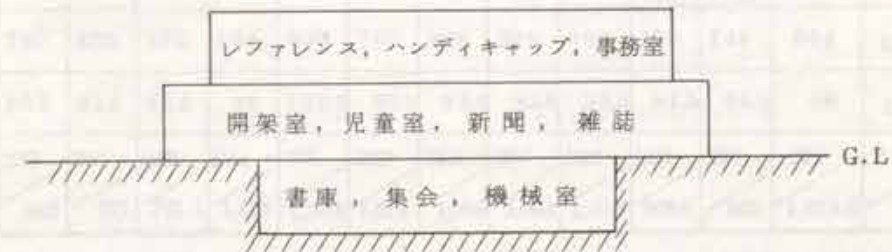 レファレンス，ハンディキャップ，事務室
開架室，児童室，新聞，雑誌
G.L
書庫，集会，機械室